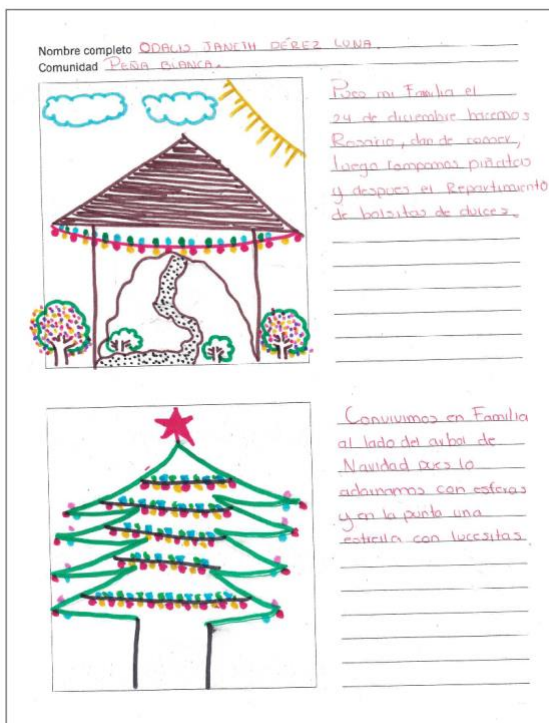 Nombre completo ODALIS JANETH PÉREZ LUNA.
Comunidad PEÑA BLANCA.
Pues mi Familia el
24 de diciembre hacemos
Rosario, dan de comer,
luego rompemos piñatas
y despues el Repartimiento
de bolsitas de dulces.
Convivimos en Familia
al lado del arbol de
Navidad pues lo
adornamos con esferas
y en la punta una
estrella con lucesitas.